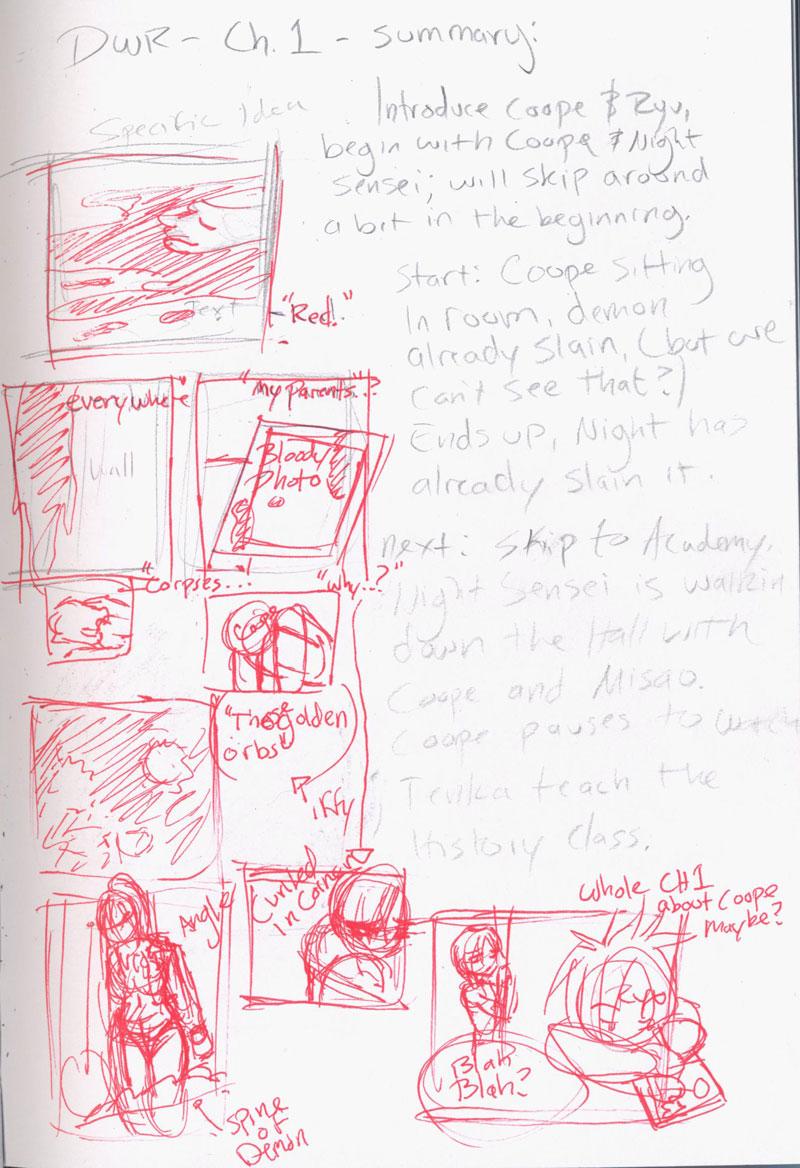 DWR - Ch. 1 - summary:
Specific Idea
Introduce Coope & Ryu,
begin with Coope & Night
Sensei; will skip around
a bit in the beginning.
Start: Coope sitting
In room, demon
already slain, (but we
can't see that?)
Ends up, Night has
already slain it.
next: skip to Academy.
Night Sensei is walkin
down the Hall with
Coope and Misao.
Coope pauses to watch
Tevika teach the
History class.
Text
"Red."
everywhere"
Wall
"my Parents..."?
Bloody
Photo
"Corpses..."
"why...?"
Coope
"Those Golden
orbs"
iffy
Angle
Curled
In Corner
Spine
of
Demon
Whole CH1
about Coope
maybe?
Ryu
Blah
Blah?